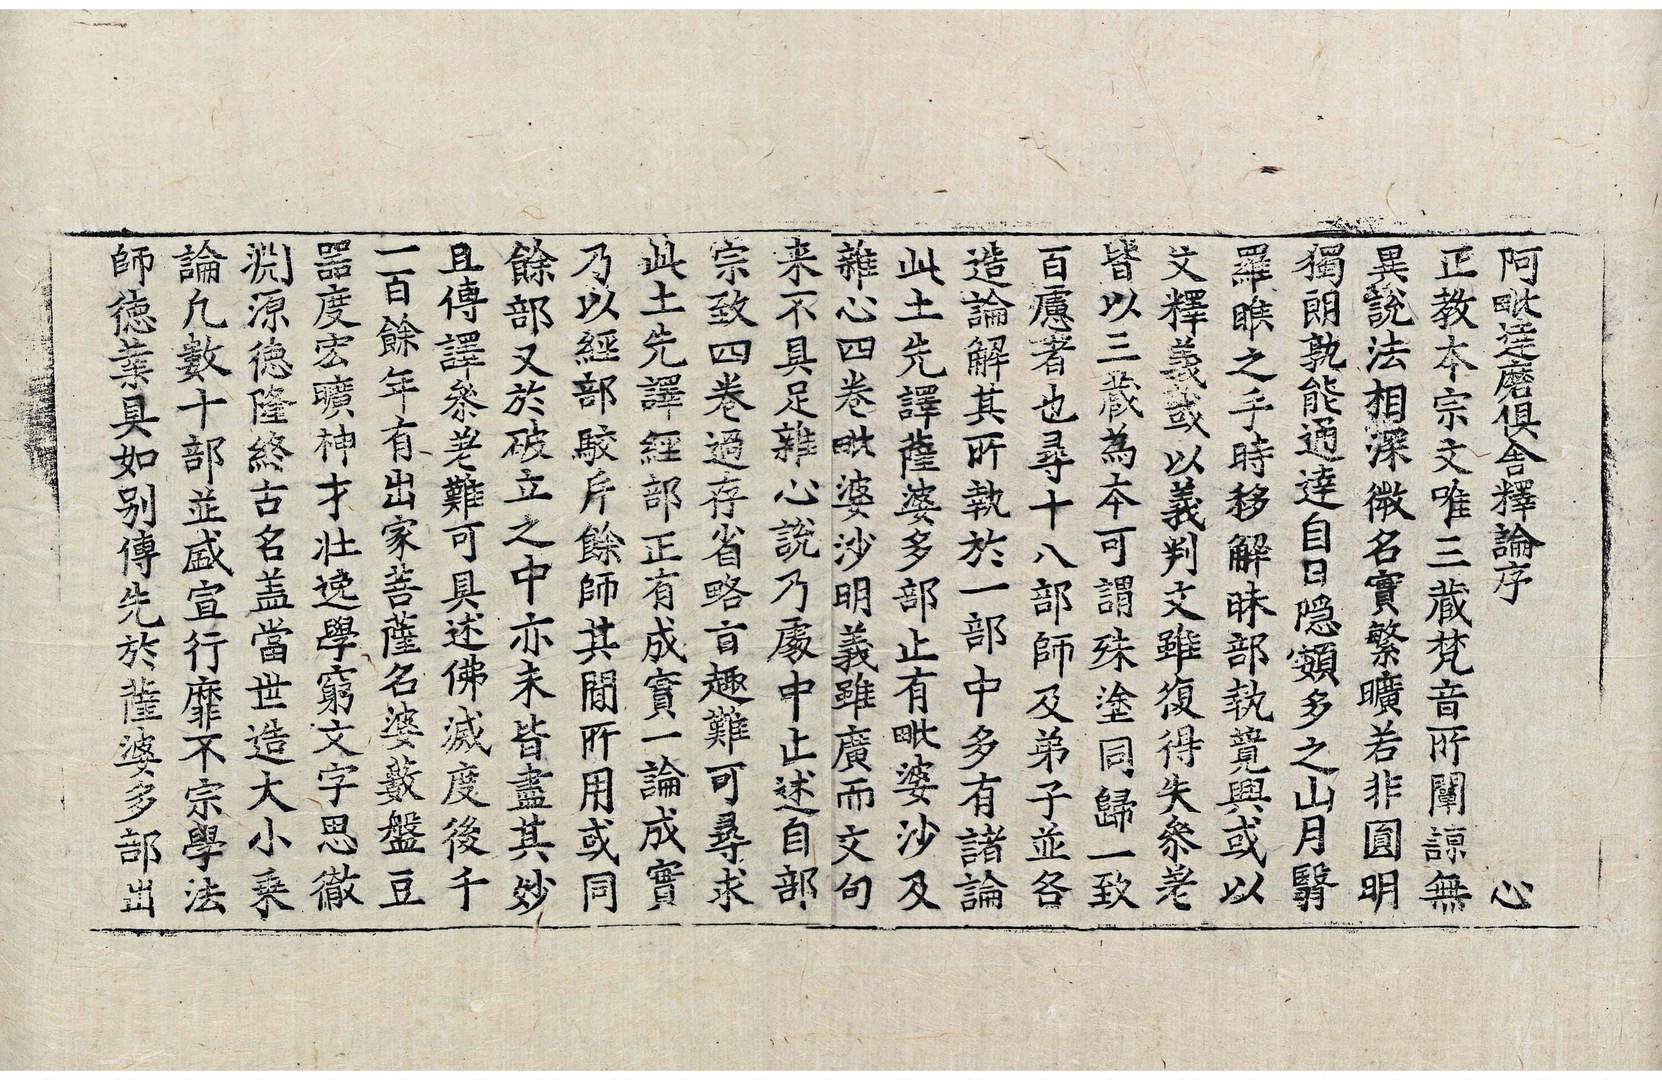 阿毗達磨俱舍釋論序 心
正教本宗文唯三藏梵音所闡諒無
異說法相深微名實繁曠若非圓明
獨朗孰能通達自日隱頞多之山月翳
羅睺之手時移解昧部執競興或以
文釋義或以義判文雖復得失參差
皆以三藏為本可謂殊塗同歸一致
百慮者也尋十八部師及弟子並各
造論解其所執於一部中多有諸論
此土先譯薩婆多部止有毗婆沙及
雜心四卷毗婆沙明義雖廣而文句
来不具足雜心說乃處中止述自部
宗致四卷過存省略旨趣難可尋求
此土先譯經部正有成實一論成實
乃以經部駮斥餘師其間所用或同
餘部又於破立之中亦未皆盡其妙
且傳譯參差難可具述佛滅度後千
一百餘年有出家菩薩名婆藪盤豆
器度宏曠神才壯逸學窮文字思徹
淵源德隆終古名蓋當世造大小乘
論凡數十部並盛宣行靡不宗學法
師德業具如別傳先於薩婆多部出